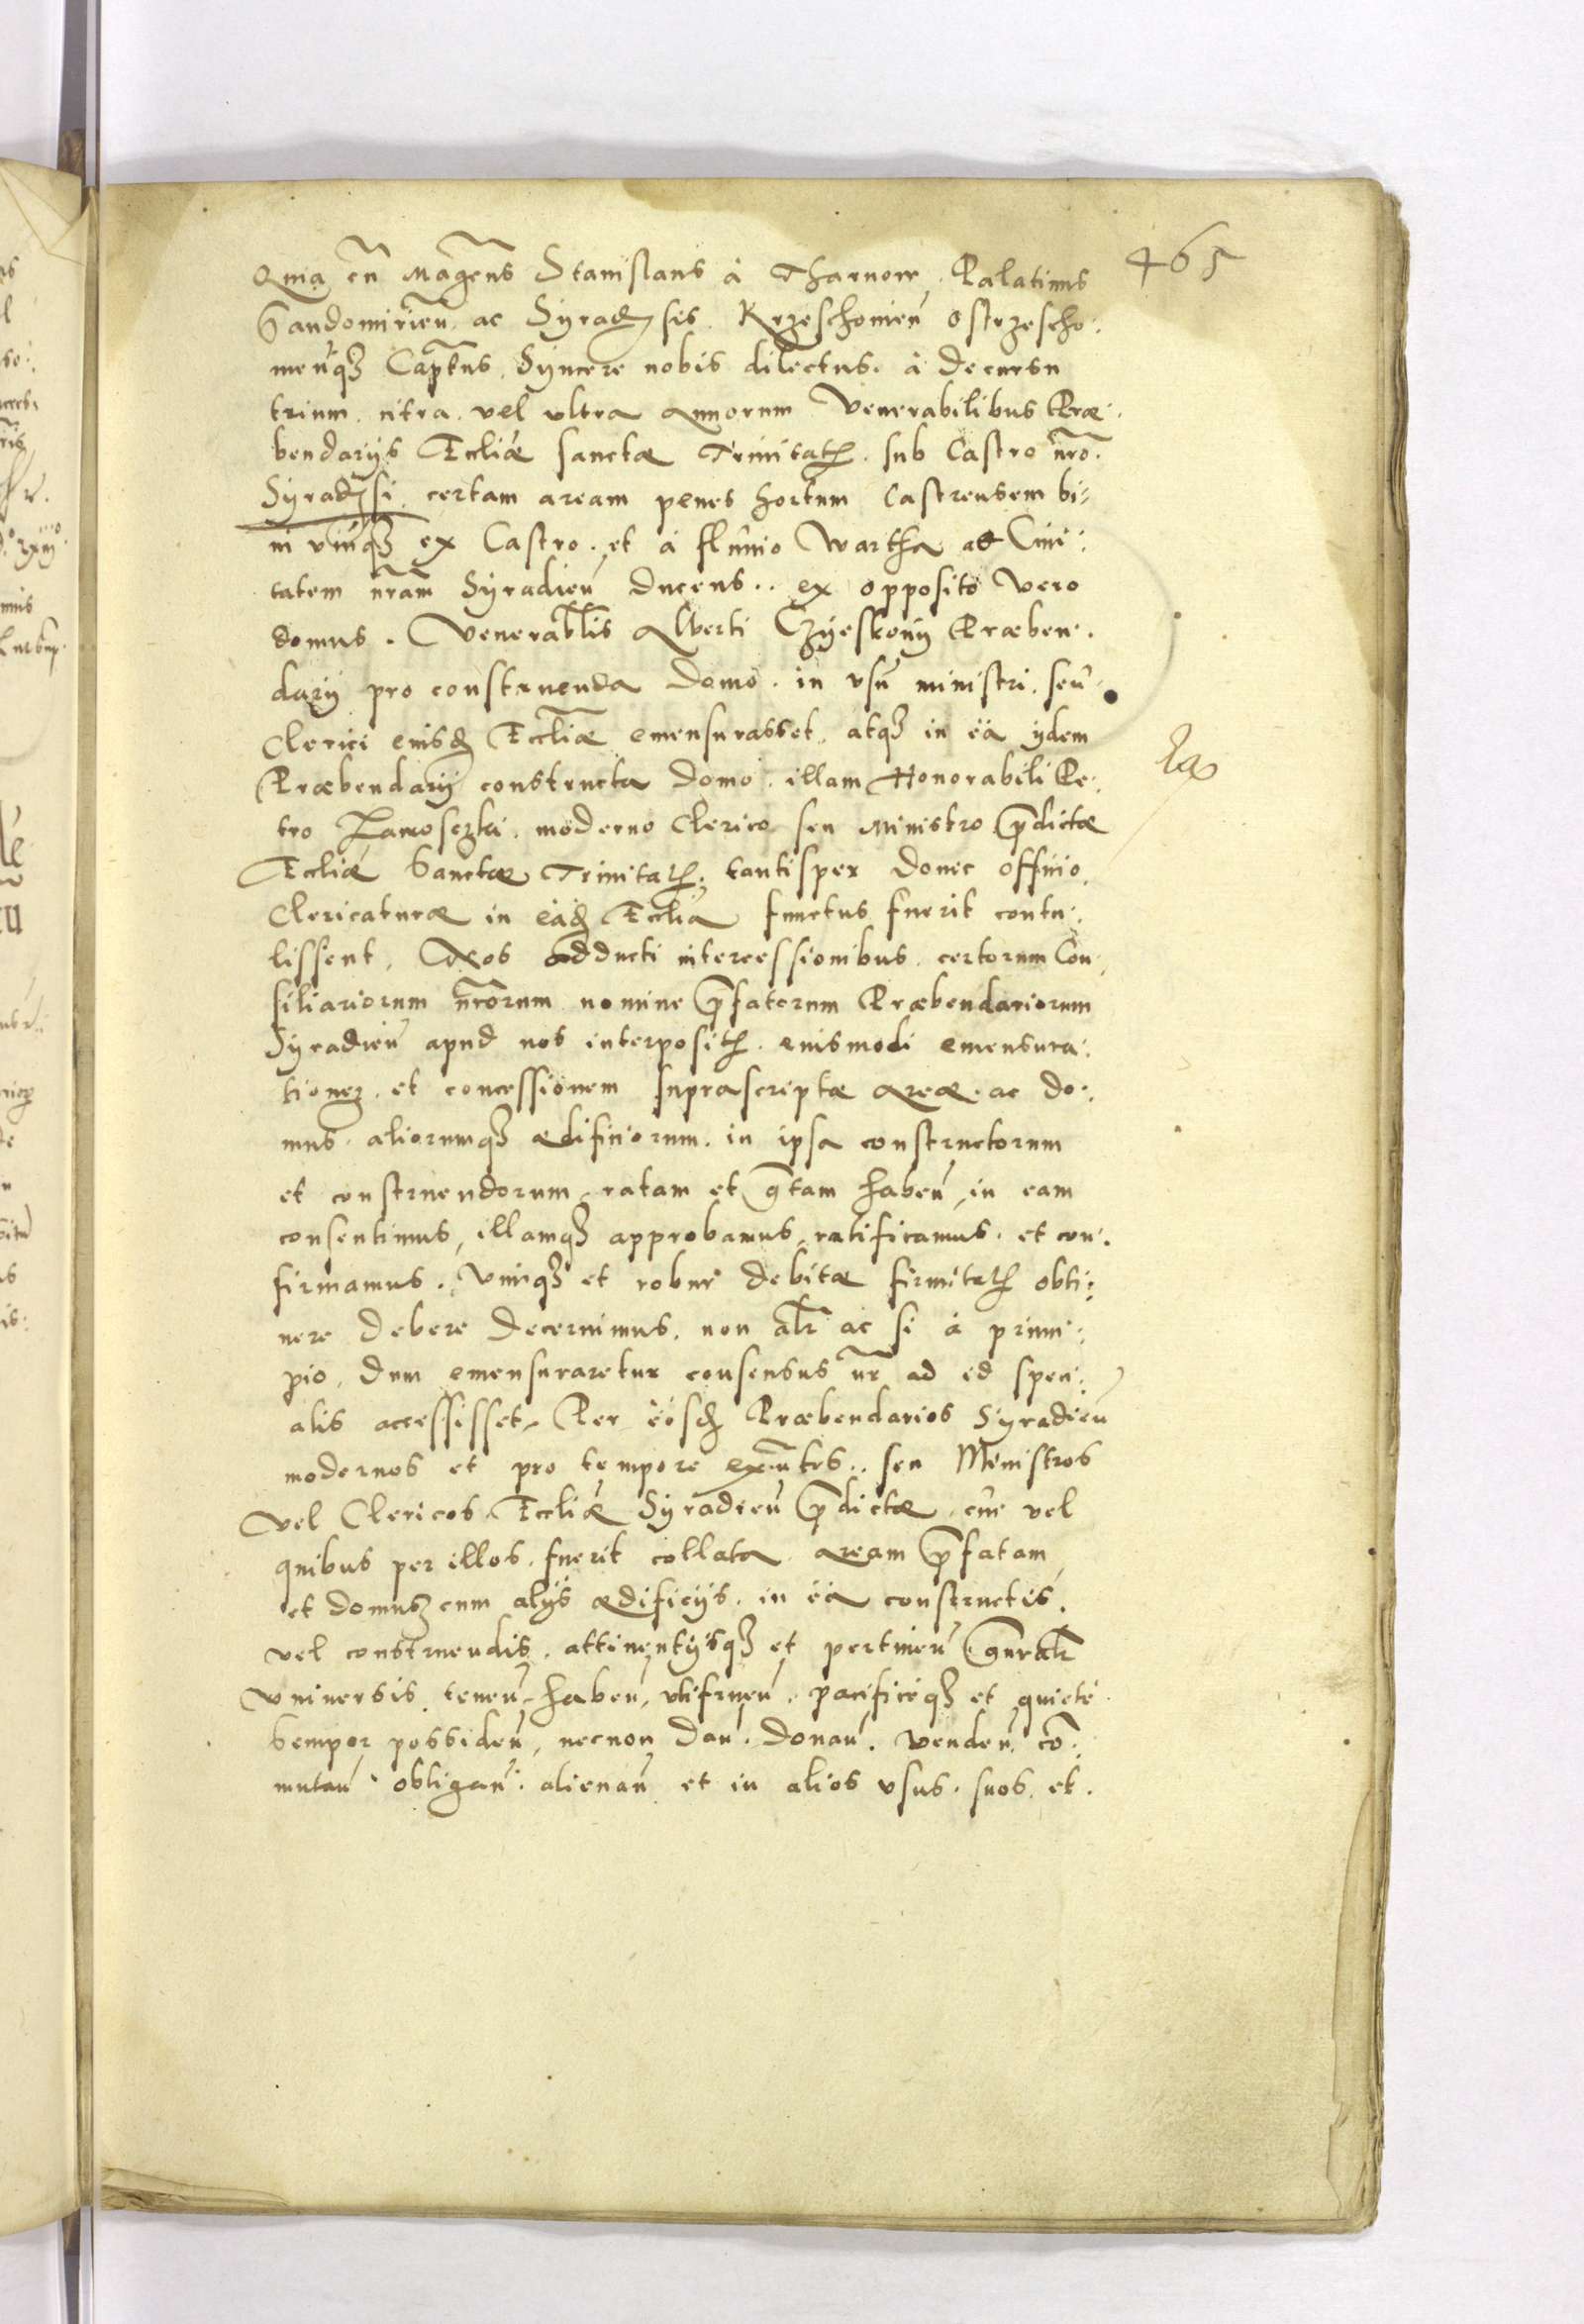 465
Quia cũ Magcus Stanislaus à Tharnow Palatinus
Sandomirieñ ac Syradeñsis Krzeschouieñ Ostrzescho:
uieñqȝ Captus Syncere nobis dilectus. à decursu
trium citra vel ultra annorum Venerabilibus Præ:
bendarijs Ecclliæ sanctæ Trinitatis sub Castro nrõ.
Syradesi certam aream penes hortum Castrensem
ex Castro. et à fluuio Wartha ad Ciui:
tatem nram Syradieñ ducens.. ex opposito vero
domus. Venerablis Alberti Præben:
darij pro construenda domo. in vsũ ministri. seu
Clerici eiusd Eccliæ emensurasset. atqȝ in ea ijdem
Præbendarij constructa domo. illam Honorabili Pe:
tro moderno Clerico seu Ministro pdictæ
Eccliæ Sanctæ Trinitatis. tantisper donec officio
Clericaturæ in ead Ecclia functus fuerit contu:
lissent, Nos adducti intercessionibus. certorum Con:
siliariorum nrorum nomine pfatorum Præbendariorum
Syradieñ apud nos interpositis. eiusmodi emensura:
tionem et concessionem suprascriptæ areæ. ac do:
mus. aliorumqȝ ædificiorum. in ipsa constructorum
et construendorum ratam et gtam habeñ, in eam
consentimus, illamqȝ approbamus, ratificamus. et con:
firmamus. Vimqȝ et robur debitæ firmitatis obti:
nere debere decernimus. non alr ac si à princi:
pio, dum emensuraretur consensus nr ad id speci:
alis accessisset. Per eosd Præbendarios Syradieñ
modernos et pro tempore exñtes.. seu Ministros
vel Clericos Eccliæ Syradieñ pdictæ. cui vel
quibus per illos. fuerit collata aream pfatam
et domum cum alijs ædificijs. in ea constructis.
vel construendis. attinentijsqȝ et pertineñ gnralr
vniuersis teneñ habeñ, vtifrueñ. pacificeqȝ et quiete
semper possideñ, necnon dañ. donañ. vendeñ cõ:
mutañ. obligañ. alienañ et in alios vsus. suos et.